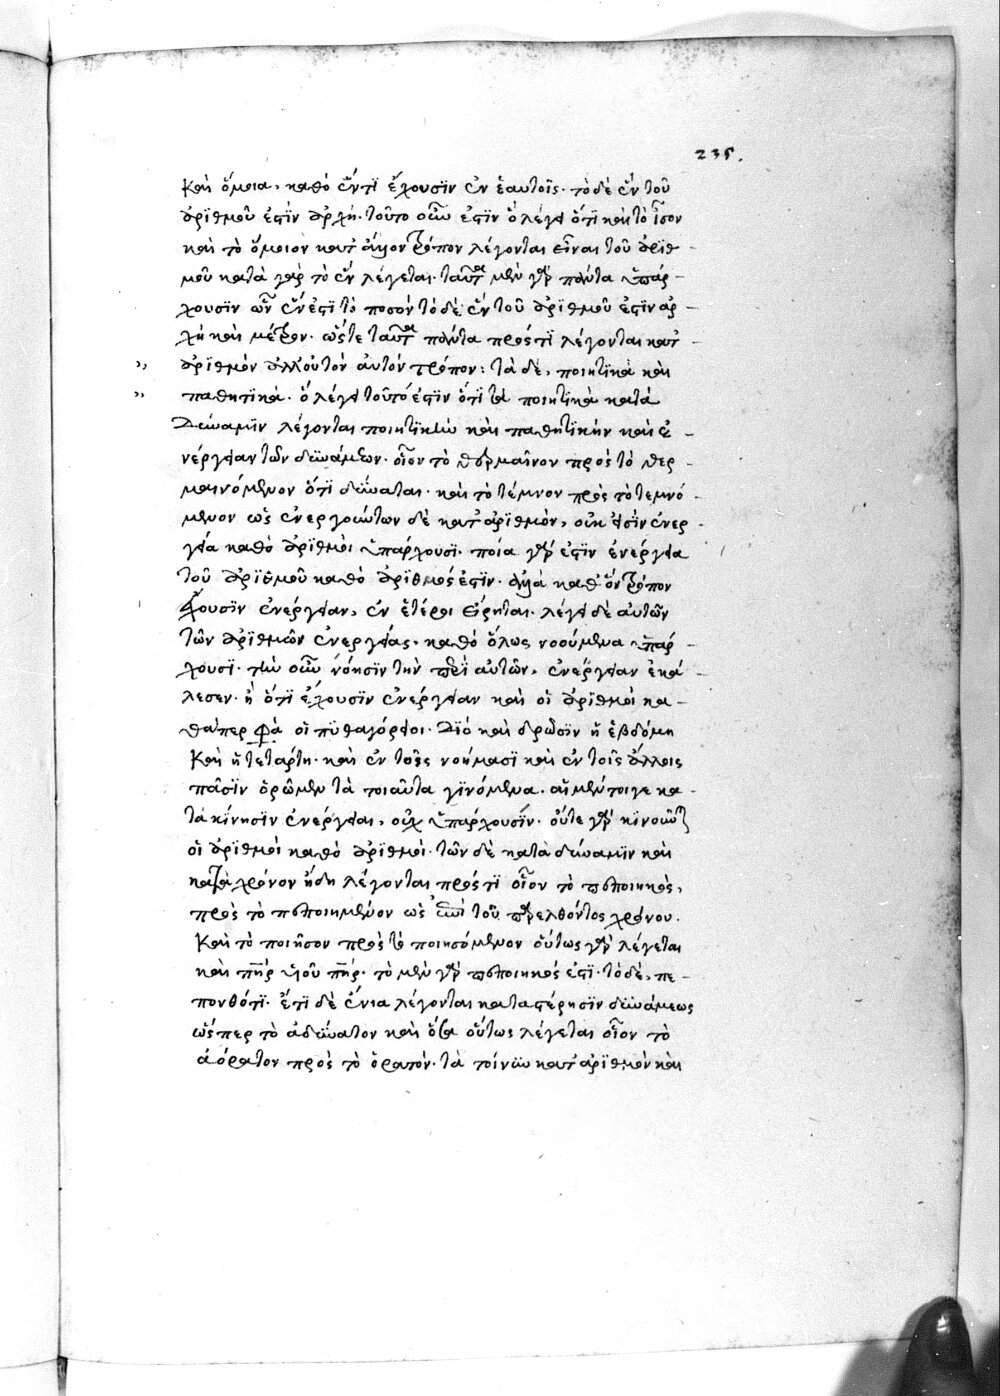 235.
καὶ ὅμοια, καθὸ ἕν τι ἔχουσιν ἐν ἑαυτοῖς· τὸ δὲ ἓν τοῦ
ἀριθμοῦ ἐστὶν ἀρχή· τοῦτο οὖν ἐστὶν ὃ λέγει ὅτι καὶ τὸ ἴσον
καὶ τὸ ὅμοιον κατ' ἄλλον τρόπον λέγονται εἶναι τοῦ ἀριθ-
μοῦ κατὰ γὰρ τὸ ἓν λέγεται· ταῦτα μὲν γὰρ πάντα ὑπάρ-
χουσιν ὧν ἕν ἐστι τὸ ποσὸν τὸ δὲ ἓν τοῦ ἀριθμοῦ ἐστὶν ἀρ-
χὴ καὶ μέτρον· ὥστε ταῦτα πάντα πρός τι λέγονται κατ'
ἀριθμὸν ἀλλ' οὐ τὸν αὐτὸν τρόπον: τὰ δὲ, ποιητικὰ καὶ
παθητικά· ὃ λέγει τοῦτό ἐστιν ὅτι τὰ ποιητικὰ κατὰ
δύναμιν λέγονται ποιητικὴν καὶ παθητικὴν καὶ ἐ-
νέργειαν τῶν δυνάμεων· οἷον τὸ θερμαῖνον πρὸς τὸ θερ-
μαινόμενον ὅτι δύναται· καὶ τὸ τέμνον πρὸς τὸ τεμνό-
μενον ὡς ἐνεργούντων δὲ κατ' ἀριθμὸν, οὐκ εἰσὶν ἐνέρ-
γειαι καθὸ ἀριθμοὶ ὑπάρχουσι· ποία γὰρ ἐστὶν ἐνέργεια
τοῦ ἀριθμοῦ καθὸ ἀριθμός ἐστιν· ἀλλὰ καθ' ὃν τρόπον
ἔχουσιν ἐνέργειαν, ἐν ἑτέροι εἴρηται· λέγει δὲ αὐτῶν
τῶν ἀριθμῶν ἐνεργείας· καθὸ ὅλως νοούμενα ὑπάρ-
χουσι· τὴν οὖν νόησιν τὴν περὶ αὐτῶν, ἐνέργειαν ἐκά-
λεσεν· ἢ ὅτι ἔχουσιν ἐνέργειαν καὶ οἱ ἀριθμοὶ κα-
θάπερ φασὶ οἱ πυθαγόρειοι· διὸ καὶ δρῶσιν ἡ ἑβδόμη
καὶ ἡ τετάρτη· καὶ ἐν τοῖς νοήμασι καὶ ἐν τοῖς ἄλλοις
πᾶσιν ὁρῶμεν τὰ τοιαῦτα γινόμενα· αἱ μέντοι γε κα-
τὰ κίνησιν ἐνέργειαι, οὐχ ὑπάρχουσιν· οὔτε γὰρ κινοῦνται
οἱ ἀριθμοὶ καθὸ ἀριθμοί· τῶν δὲ κατὰ δύναμιν καὶ
κατὰ χρόνον ἤδη λέγονται πρός τι οἷον τὸ πεποιηκὸς,
πρὸς τὸ πεποιημένον ὡς ἐπὶ τοῦ παρελθόντος χρόνου.
καὶ τὸ ποιῆσον πρὸς τὸ ποιησόμενον οὕτως γὰρ λέγεται
καὶ πηρ υἱοῦ πηρ· τὸ μὲν γὰρ πεποιηκός ἐστι· τὸ δὲ, πε-
πονθός τι· ἔτι δὲ ἔνια λέγονται κατὰ στέρησιν δυνάμεως
ὥσπερ τὸ ἀδύνατον καὶ ὅσα οὕτως λέγεται οἷον τὸ
ἀόρατον πρὸς τὸ ὁρατόν· τὰ τοίνυν κατ' ἀριθμὸν καὶ